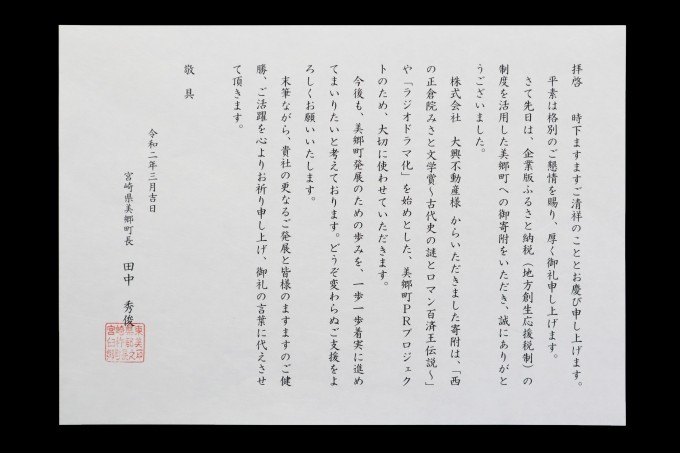 拝啓　時下ますますご清祥のこととお慶び申し上げます。
平素は格別のご懇情を賜り、厚く御礼申し上げます。
さて先日は、企業版ふるさと納税（地方創生応援税制）の
制度を活用した美郷町への御寄附をいただき、誠にありがと
うございました。
株式会社　大興不動産様 からいただきました寄附は、「西
の正倉院みさと文学賞～古代史の謎とロマン百済王伝説～」
や「ラジオドラマ化」を始めとした、美郷町ＰＲプロジェク
トのため、大切に使わせていただきます。
今後も、美郷町発展のための歩みを、一歩一歩着実に進め
てまいりたいと考えております。どうぞ変わらぬご支援をよ
ろしくお願いいたします。
末筆ながら、貴社の更なるご発展と皆様のますますのご健
勝、ご活躍を心よりお祈り申し上げ、御礼の言葉に代えさせ
て頂きます。
敬具
令和二年三月吉日
宮崎県美郷町長　田中　秀俊